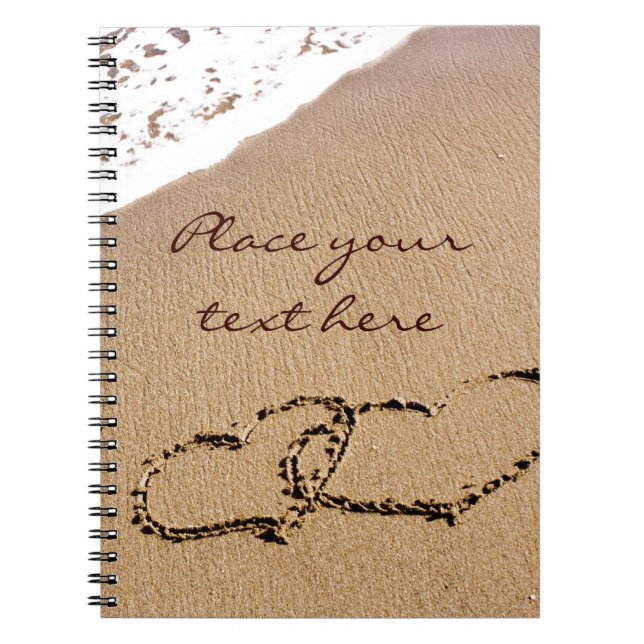 Place your
text here